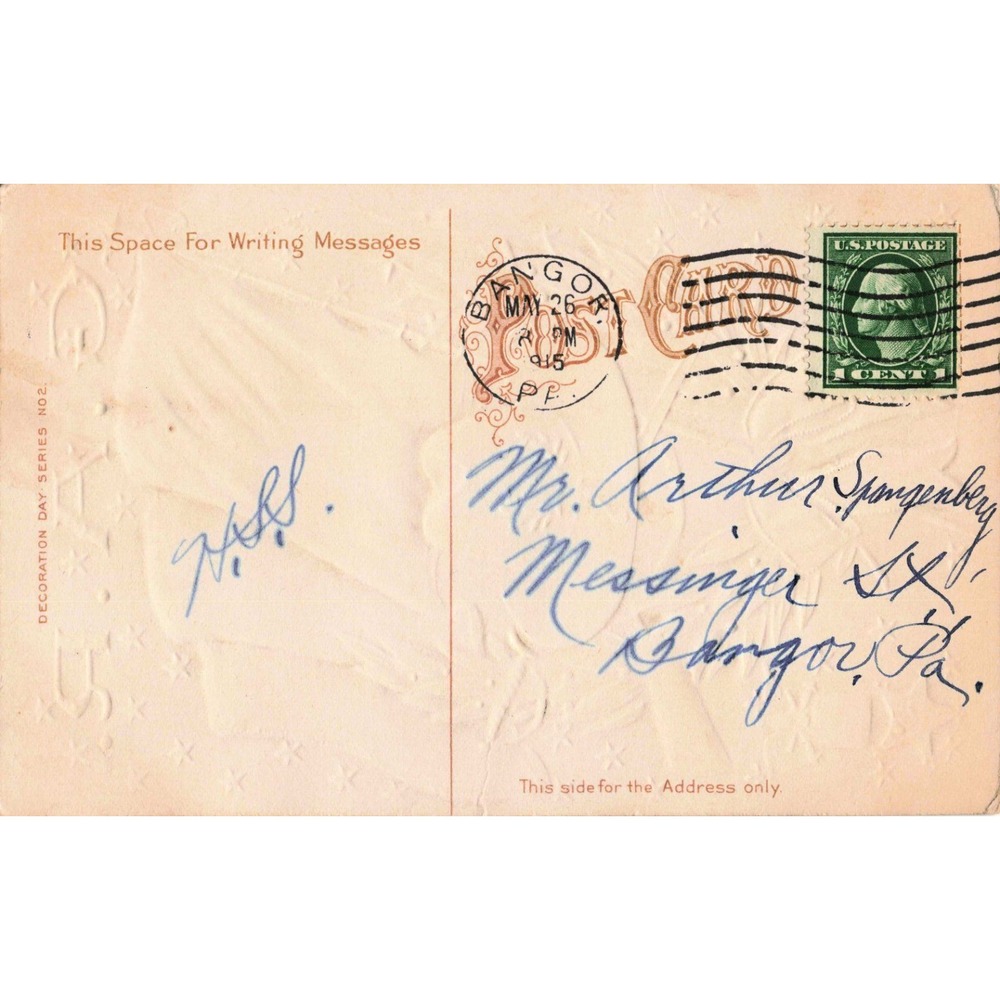 This Space For Writing Messages
DECORATION DAY SERIES NO 2.
H.S.S.
POST CARD
BANGOR,
MAY 26
PM
1915
PA.
U.S. POSTAGE
1 CENT 1
Mr. Arthur Spangenberg
Messinger St,
Bangor, Pa.
This side for the Address only.